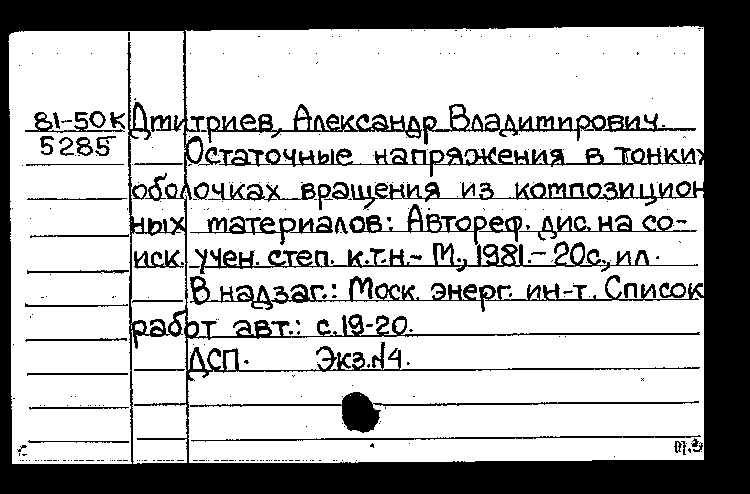 81-50К Дмитриев, Александр Владимирович.
5285 Остаточные напряжения в тонких
оболочках вращения из композицион
ных материалов: Автореф. дис. на со-
иск. учен. степ. к.т.н.- М., 1981.- 20с., ил.
В надзаг.: Моск. энерг. ин-т. Список
работ авт.: с.19-20.
ДСП. Экз.№4.